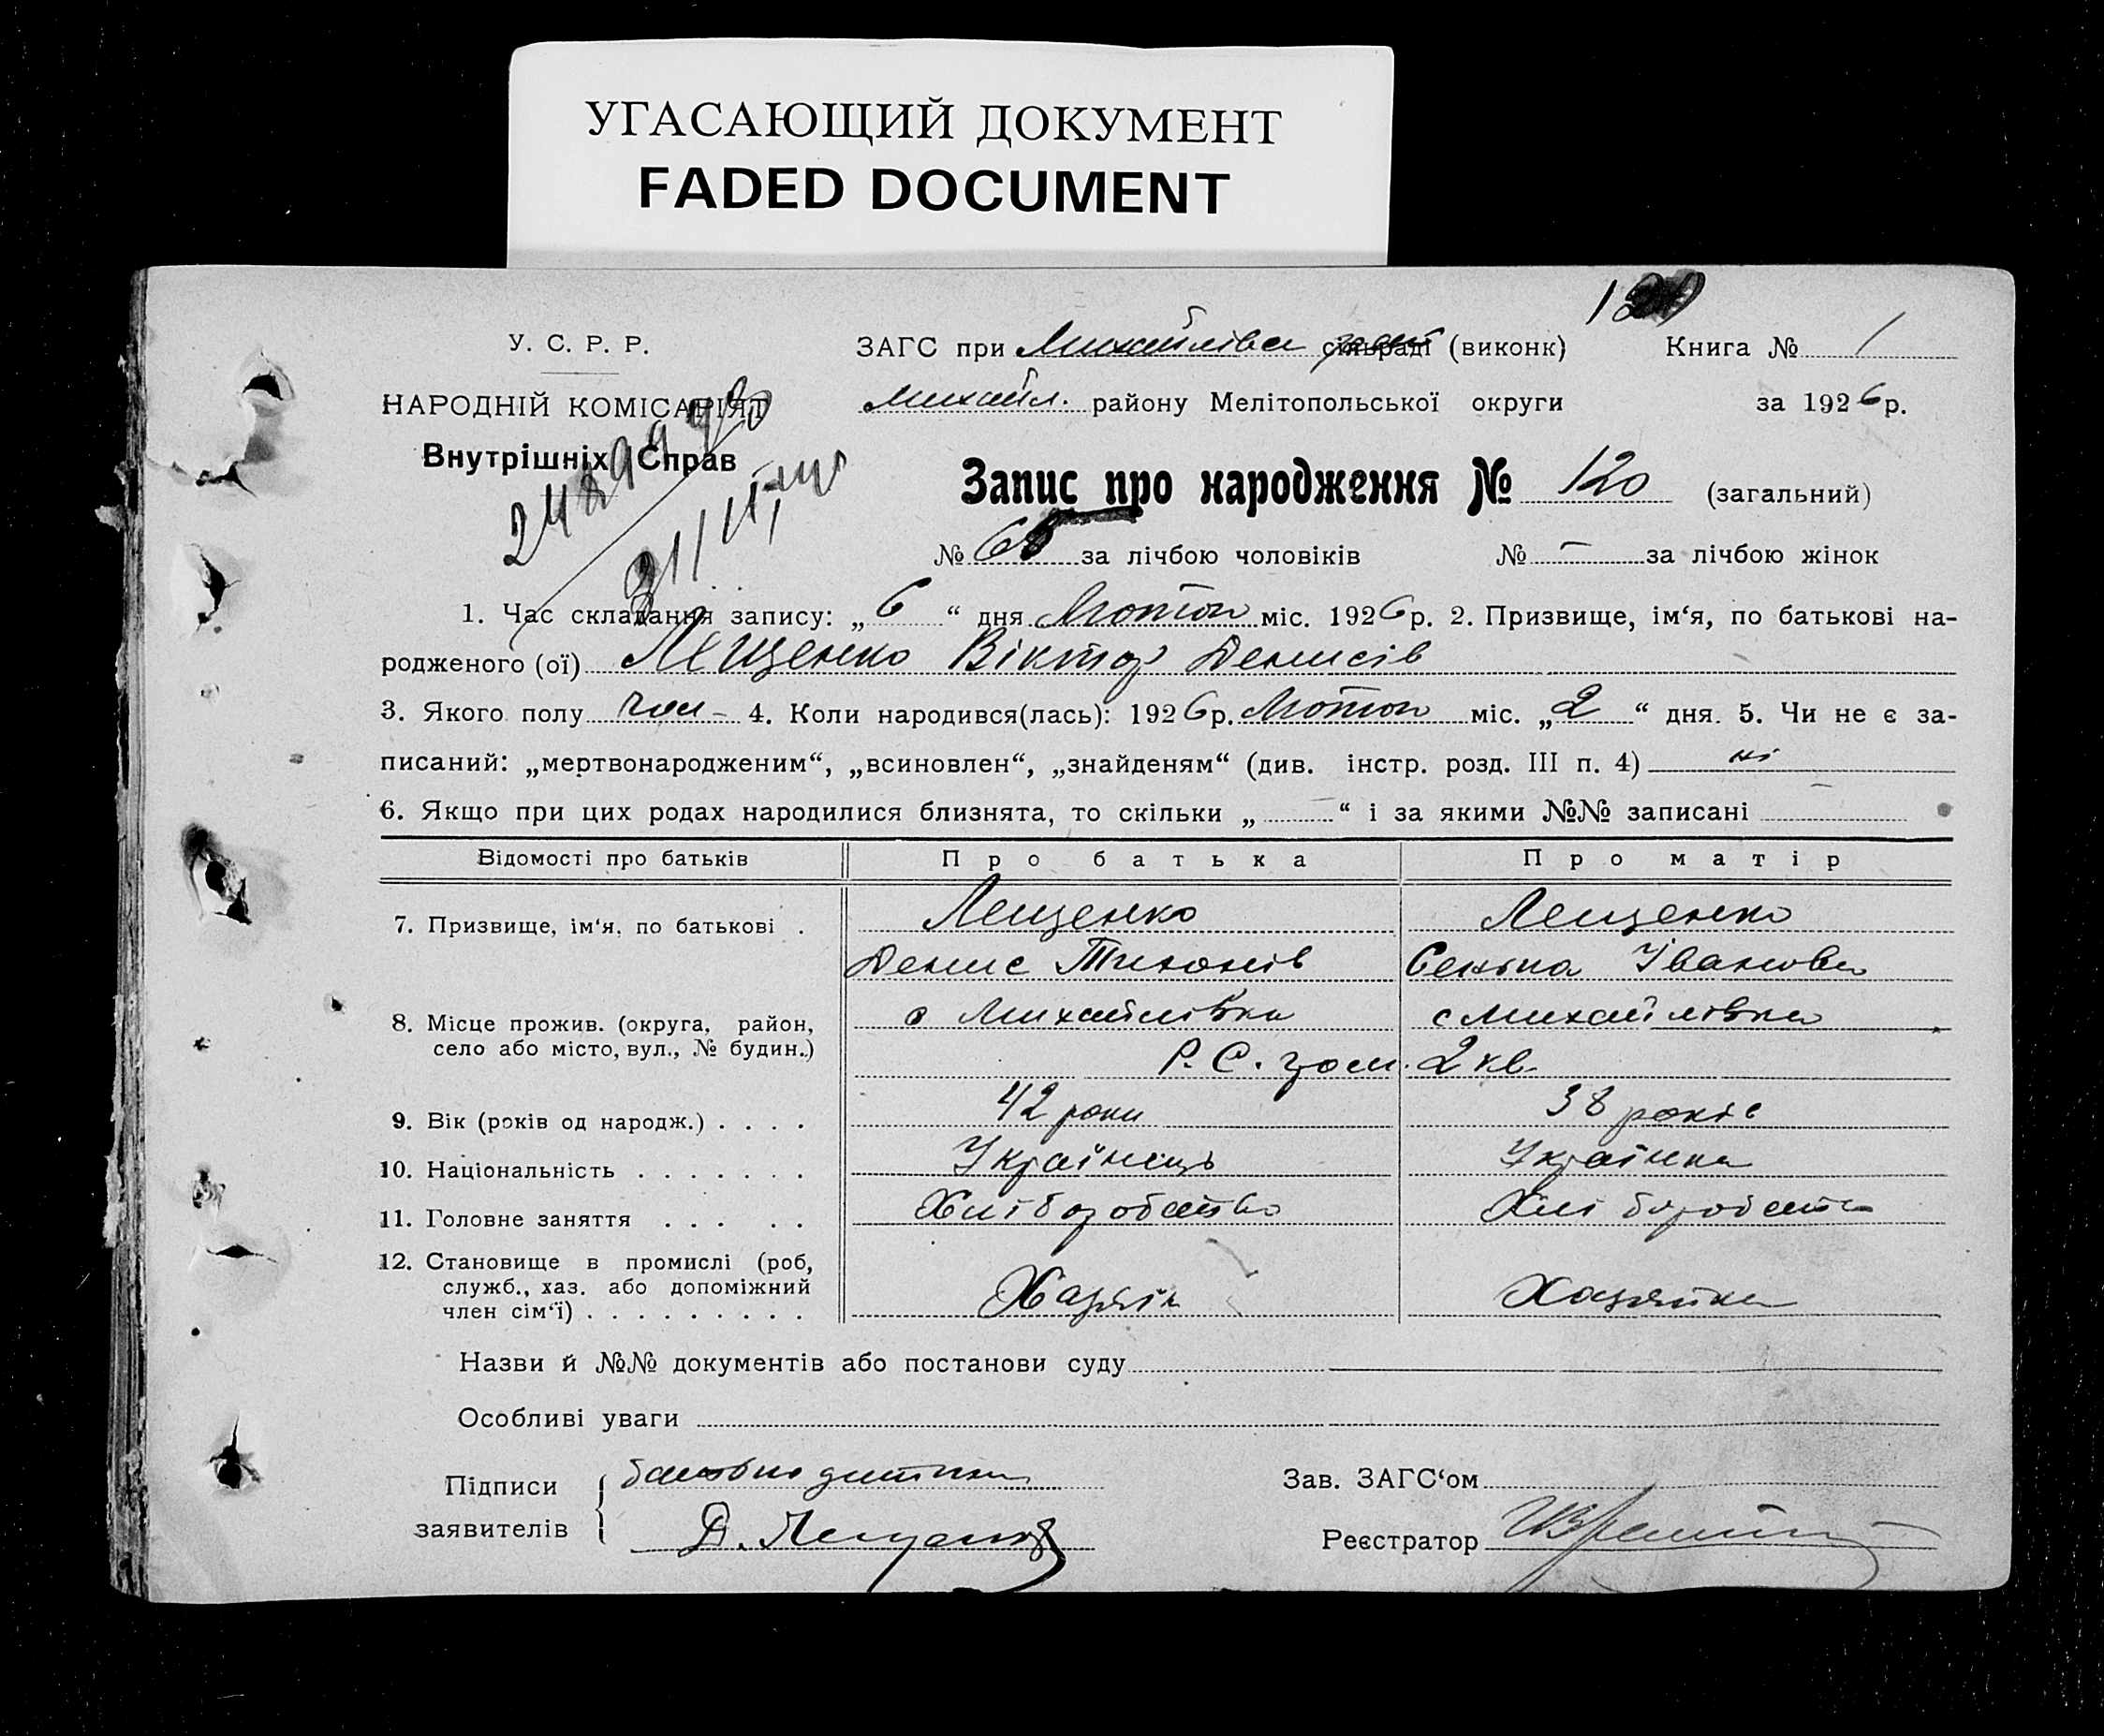 УГАСАЮЩИЙ ДОКУМЕНТ
FADED DOCUMENT
У. С. Р. Р.
НАРОДНІЙ КОМІСАРІЯТ
Внутрішніх Справ
ЗАГС при сільраді (виконк) Книга № 1
Михайл. району Мелітопольської округи за 1926 р.
Запис про народження № 120 (загальний)
№ за лічбою чоловіків № – за лічбою жінок
1. Час складання запису: „ 6 “ дня Лютого міс. 1926 р. 2. Призвище, ім‘я, по батькові на-
родженого (ої) Лещенко Віктор Денисів
3. Якого полу чол – 4. Коли народився(лась): 1926 р. Лютого міс. „ 2 “ дня. 5. Чи не є за-
писаний: „мертвонародженим“, „всиновлен“, „знайденям“ (див. інстр. розд. III п. 4) ні
6. Якщо при цих родах народилися близнята, то скільки „ “ і за якими №№ записані
Відомості про батьків Про батька Про матір
7. Призвище, ім‘я, по батькові . Лещенко Лещенко
Денис Тихонів Іванова
8. Місце прожив. (округа, район, с Михайлівка с Михайлівка
село або місто, вул., № будин.) Р. С. 2 кв.
9. Вік (років од народж.) . . . . 42 роки 38 років
10. Національність . . . . . . . Українець Українка
11. Головне заняття . . . . . Хліборобство Хліборобство
12. Становище в промислі (роб,
служб., хаз. або допоміжний Хазяїн Хазяйка
член сім‘ї) . . . . . . . . .
Назви й №№ документів або постанови суду
Особливі уваги
Підписи батько дитини Зав. ЗАГС‘ом
заявителів Д. Лещенко Реєстратор